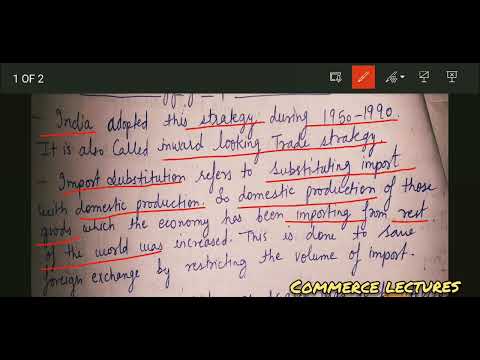 1 OF 2
- India adopted this strategy during 1950-1990.
It is also called inward looking Trade strategy
- Import Substitution refers to substituting import
with domestic production. So domestic production of those
goods which the economy has been importing from rest
of the world was increased. This is done to save
foreign exchange by restricting the volume of import.
COMMERCE LECTURES